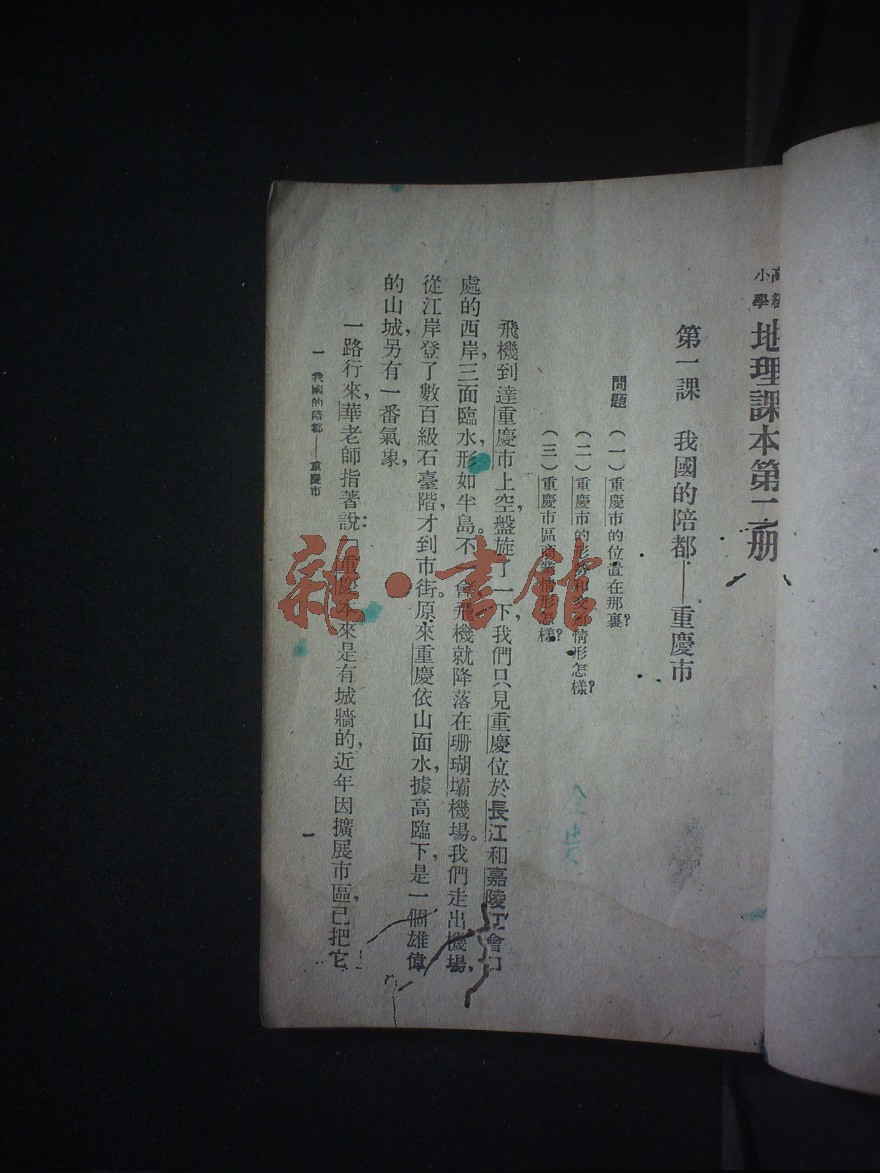 高級小學 地理課本第二册
第一課　我國的陪都——重慶市
問題　(一)重慶市的位置在那裏?
(二)重慶市的形勢和交通情形怎樣?
(三)重慶市區商業情形怎樣?
飛機到達重慶市上空,盤旋了一下,我們只見重慶位於長江和嘉陵江會口
處的西岸,三面臨水,形如半島。不會飛機就降落在珊瑚壩機場。我們走出機場,
從江岸登了數百級石臺階,才到市街。原來重慶依山面水,據高臨下,是一個雄偉
的山城,另有一番氣象,
一路行來,華老師指著說:「重慶本來是有城牆的,近年因擴展市區,已把它
一　我國的陪都——重慶市
一
雜·書館